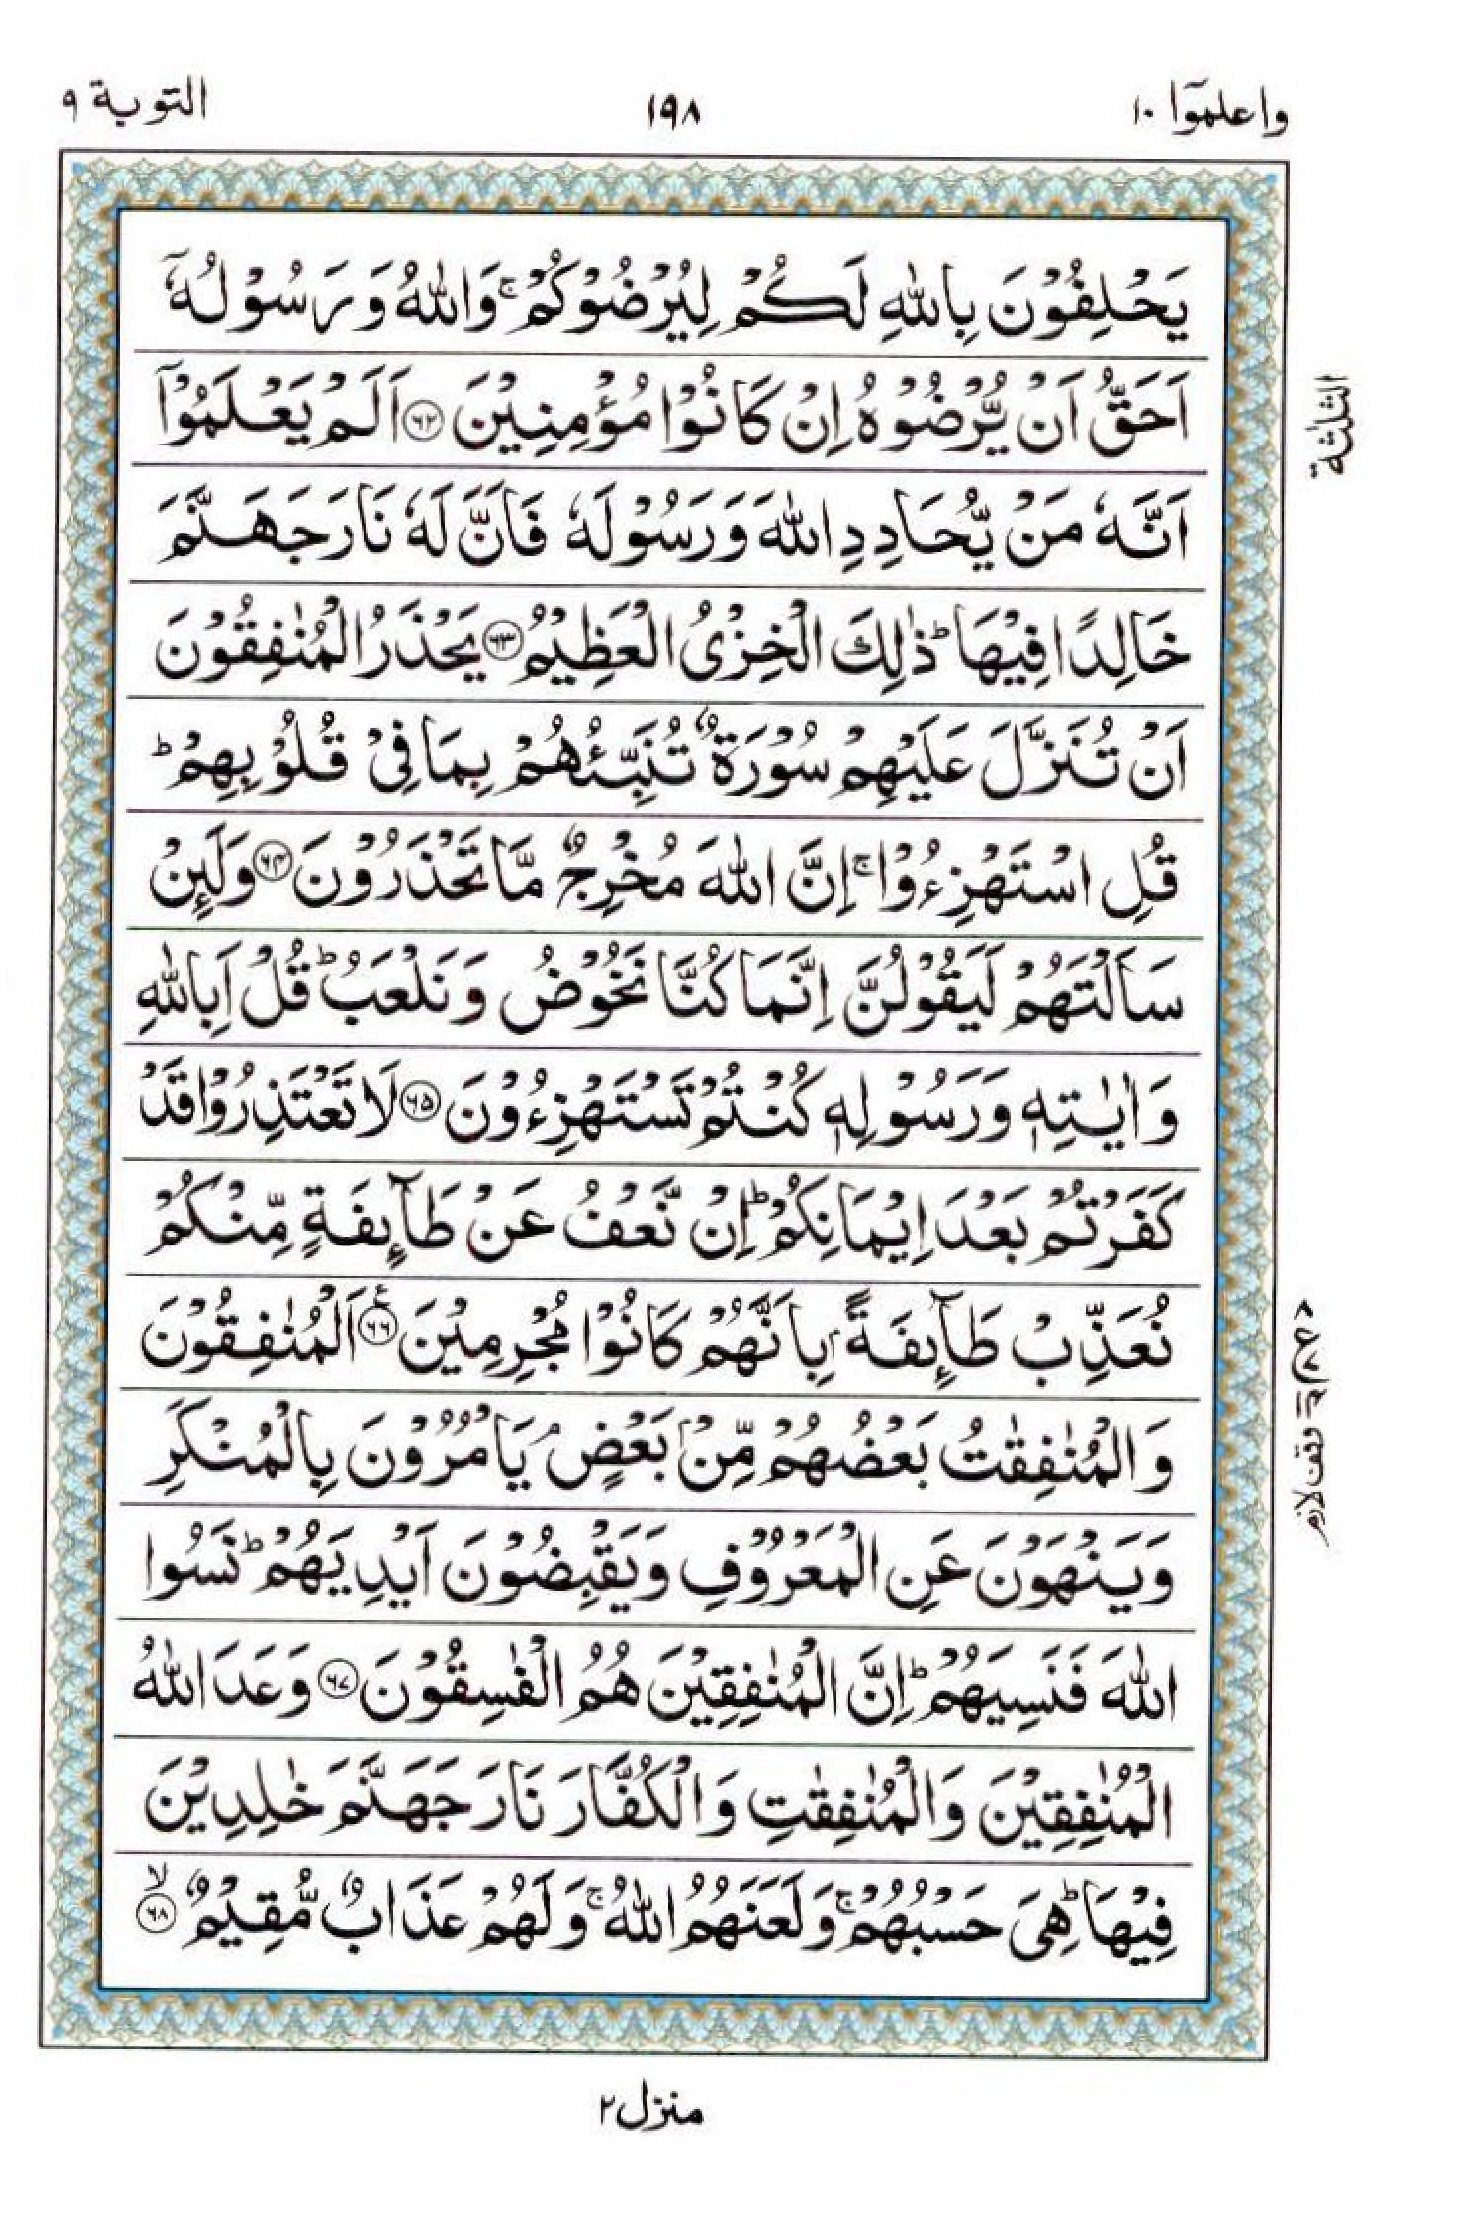 واعلموٓا ١٠
١٩٨
التوبة ٩
يَحْلِفُوْنَ بِاللّٰهِ لَكُمْ لِيُرْضُوْكُمْ ۚ وَاللّٰهُ وَرَسُوْلُهٗٓ
اَحَقُّ اَنْ يُّرْضُوْهُ اِنْ كَانُوْا مُؤْمِنِيْنَ ﴿٦٢﴾ اَلَمْ يَعْلَمُوْٓا
اَنَّهٗ مَنْ يُّحَادِدِ اللّٰهَ وَرَسُوْلَهٗ فَاَنَّ لَهٗ نَارَ جَهَنَّمَ
خَالِدًا فِيْهَا ؕ ذٰلِكَ الْخِزْيُ الْعَظِيْمُ ﴿٦٣﴾ يَحْذَرُ الْمُنٰفِقُوْنَ
اَنْ تُنَزَّلَ عَلَيْهِمْ سُوْرَةٌ تُنَبِّئُهُمْ بِمَا فِيْ قُلُوْبِهِمْ ؕ
قُلِ اسْتَهْزِءُوْا ۚ اِنَّ اللّٰهَ مُخْرِجٌ مَّا تَحْذَرُوْنَ ﴿٦٤﴾ وَلَئِنْ
سَاَلْتَهُمْ لَيَقُوْلُنَّ اِنَّمَا كُنَّا نَخُوْضُ وَنَلْعَبُ ؕ قُلْ اَبِاللّٰهِ
وَاٰيٰتِهٖ وَرَسُوْلِهٖ كُنْتُمْ تَسْتَهْزِءُوْنَ ﴿٦٥﴾ لَا تَعْتَذِرُوْا قَدْ
كَفَرْتُمْ بَعْدَ اِيْمَانِكُمْ ؕ اِنْ نَّعْفُ عَنْ طَآئِفَةٍ مِّنْكُمْ
نُعَذِّبْ طَآئِفَةًۢ بِاَنَّهُمْ كَانُوْا مُجْرِمِيْنَ ﴿٦٦﴾ اَلْمُنٰفِقُوْنَ
وَالْمُنٰفِقٰتُ بَعْضُهُمْ مِّنْۢ بَعْضٍ ۘ يَاْمُرُوْنَ بِالْمُنْكَرِ
وَيَنْهَوْنَ عَنِ الْمَعْرُوْفِ وَيَقْبِضُوْنَ اَيْدِيَهُمْ ؕ نَسُوا
اللّٰهَ فَنَسِيَهُمْ ؕ اِنَّ الْمُنٰفِقِيْنَ هُمُ الْفٰسِقُوْنَ ﴿٦٧﴾ وَعَدَ اللّٰهُ
الْمُنٰفِقِيْنَ وَالْمُنٰفِقٰتِ وَالْكُفَّارَ نَارَ جَهَنَّمَ خٰلِدِيْنَ
فِيْهَا ؕ هِيَ حَسْبُهُمْ ۚ وَلَعَنَهُمُ اللّٰهُ ۚ وَلَهُمْ عَذَابٌ مُّقِيْمٌ ﴿٦٨﴾ۙ
الثلٰثة
وقف لازم
منزل ٢